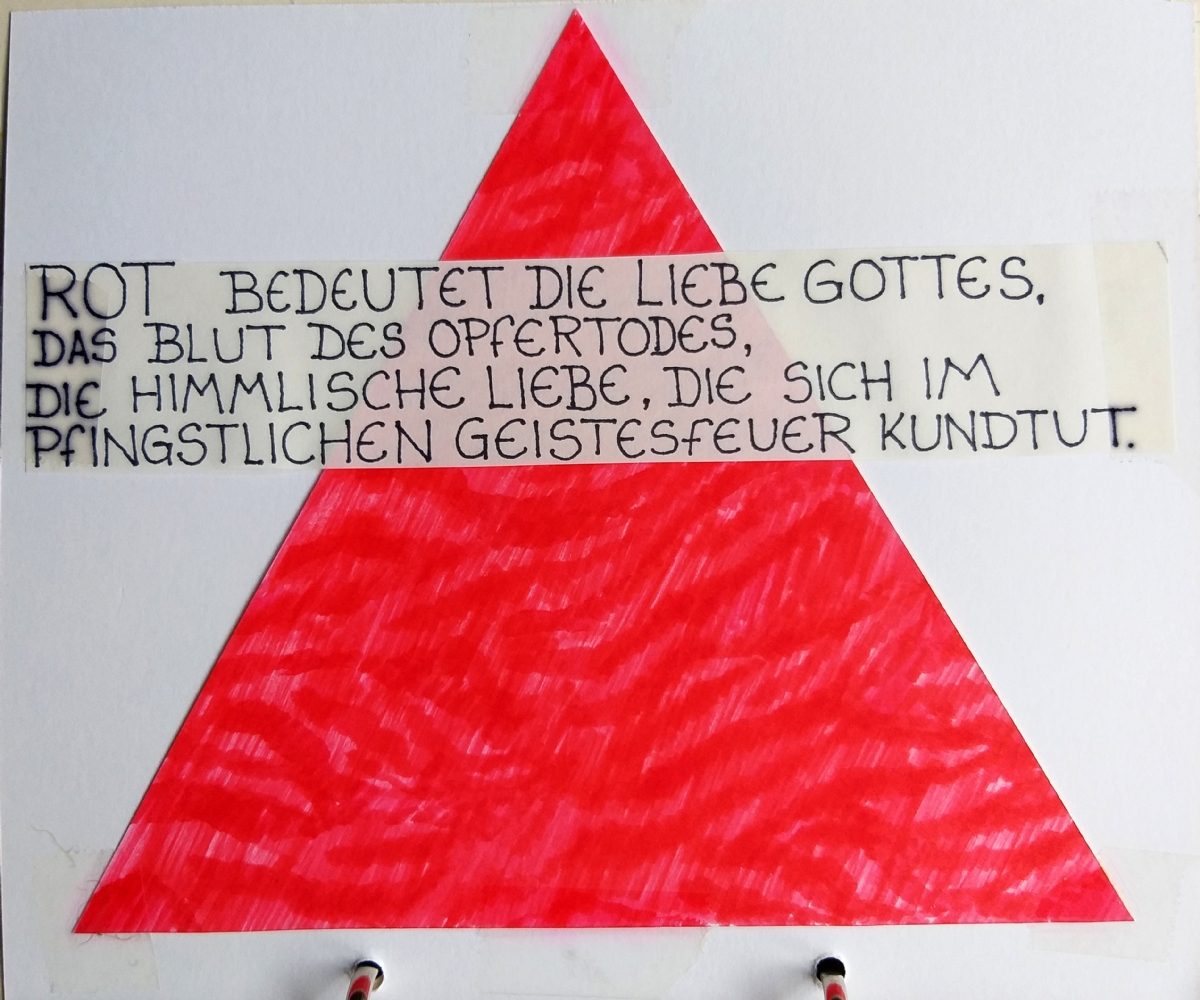 ROT BEDEUTET DIE LIEBE GOTTES,
DAS BLUT DES OPFERTODES,
DIE HIMMLISCHE LIEBE, DIE SICH IM
PFINGSTLICHEN GEISTESFEUER KUNDTUT.